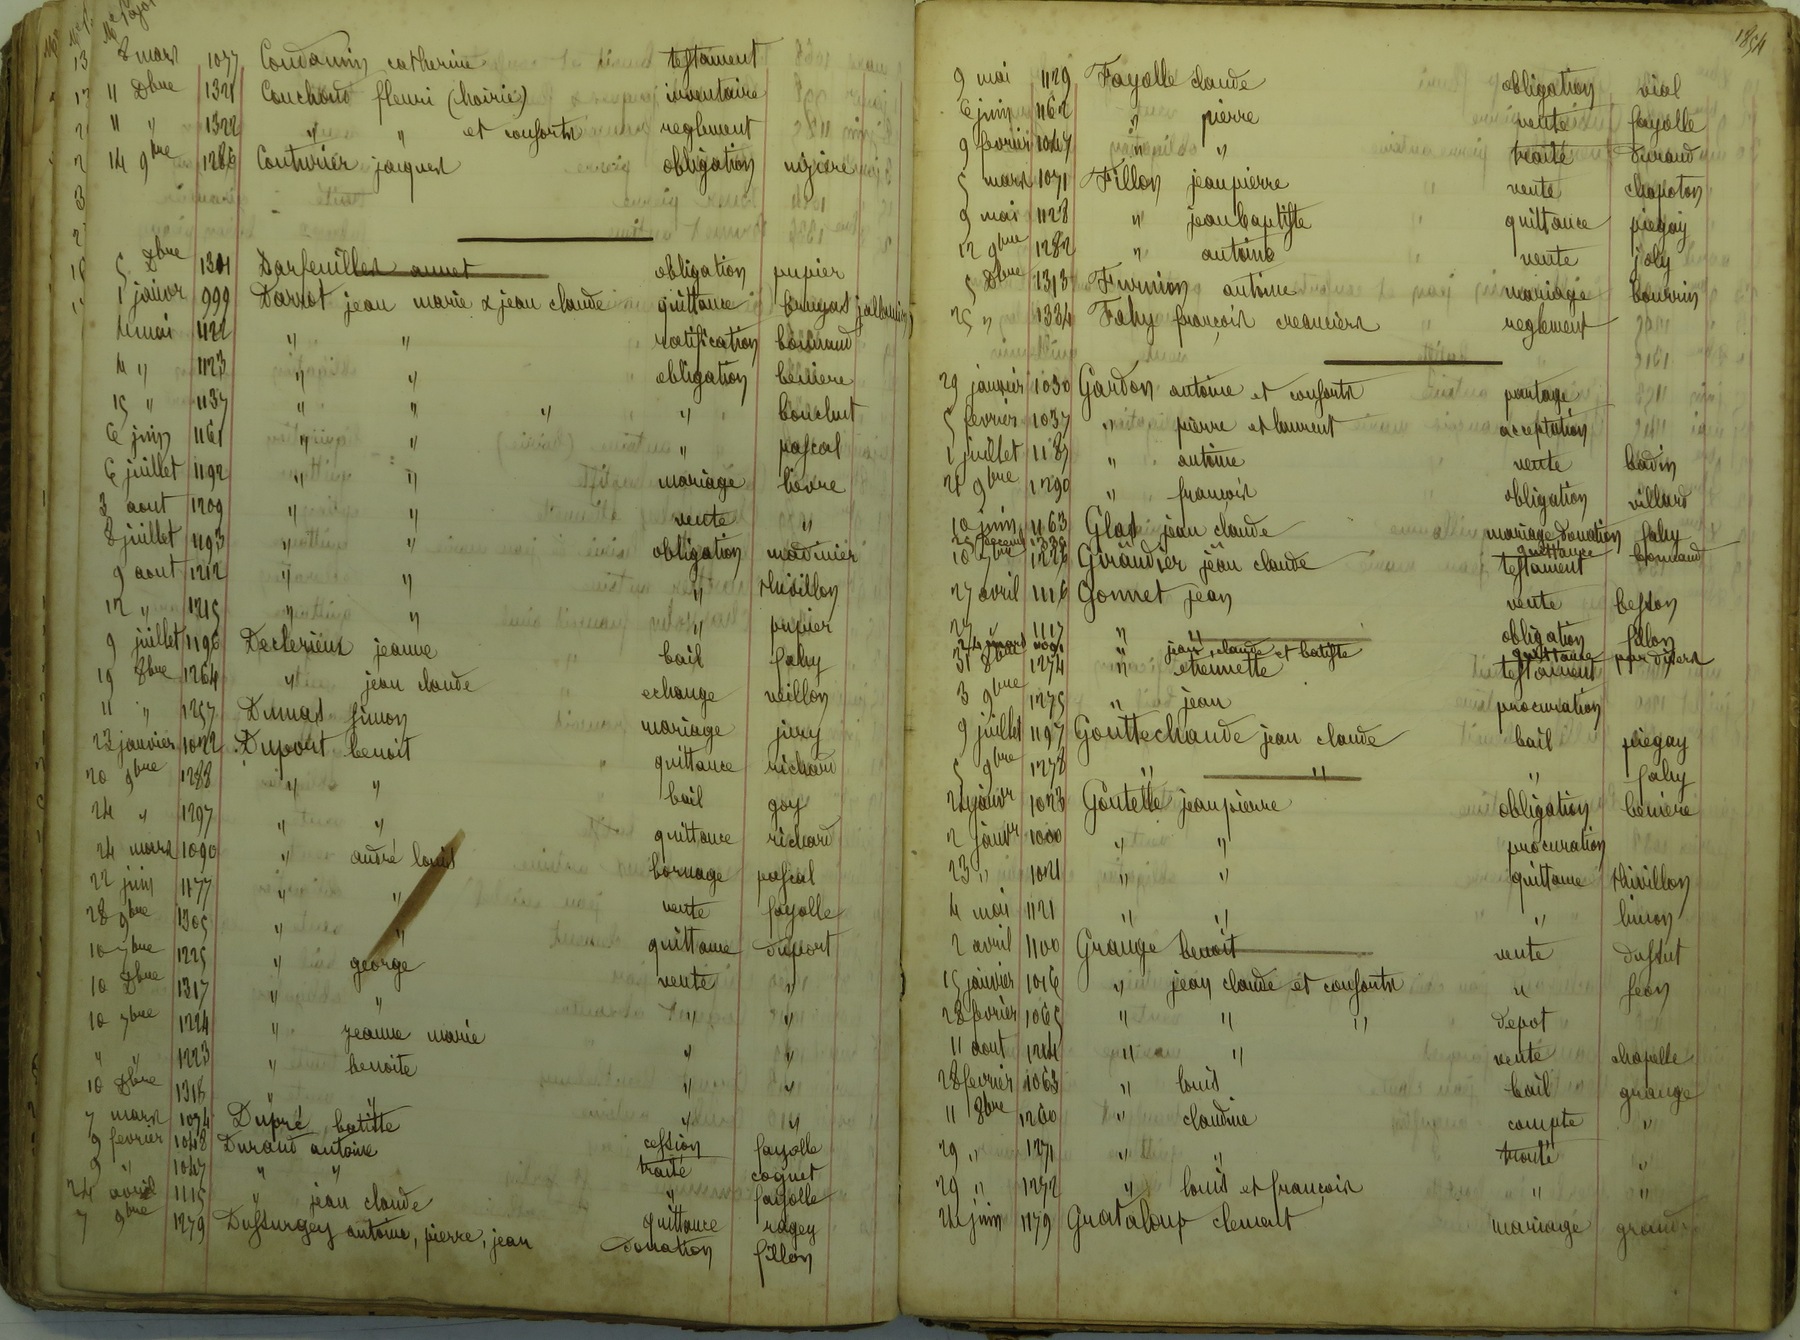 8 mars 1077 catherine testament
11 Dbre 1321 Couchoud fleuri (hoirie) inventaire
11 " 1322 " " et consorts reglement
14 9bre 1286 Couturier jacques obligation
5 Dbre 1301 Darfeuilles annet obligation pupier
1 janvr 999 Darrot jean marie & jean claude quittance
4 mai 1122 " " ratification
4 " 1123 " " obligation beniere
15 " 1137 " " " " bouchut
6 juin 1161 " " " pascal
6 juillet 1192 " " mariage bièvre
3 aout 1209 " " vente "
8 juillet 1193 " " obligation madinier
9 aout 1212 " " " thivillon
12 " 1215 " " " pupier
9 juillet 1196 Declerieux jeanne bail fahy
19 8bre 1264 " jean claude echange veillon
11 " 1257 Dumas simon mariage jury
23 janvier 1022 Dupont benoit quittance richard
20 9bre 1288 " " bail goy
24 " 1297 " " quittance richard
24 mars 1090 " andré louis bornage pascal
22 juin 1177 " " vente fayolle
28 9bre 1305 " " quittance duport
10 7bre 1225 " george vente "
10 Dbre 1317 " " " "
10 7bre 1224 " jeanne marie " "
" " 1223 " benoite " "
10 Dbre 1318 " " " "
7 mars 1074 Dupré batiste cession fayolle
9 fevrier 1048 Durand antoine traité coquet
9 " 1047 " " " fayolle
24 avril 1115 " jean claude quittance ragey
7 9bre 1279 Dussurgey antoine, pierre, jean donation fillon
1854
9 mai 1129 Fayolle claude obligation vial
6 juin 1162 " pierre vente fayolle
9 fevrier 1047 " " traité durand
5 mars 1071 Fillon jean pierre vente chapoton
9 mai 1128 " jean baptiste quittance piegay
12 9bre 1282 " antoine vente joly
5 Dbre 1313 Furnion antoine mariage bourrin
25 " 1334 Fahy françois creanciers reglement
29 janvier 1030 Gardon antoine et consorts partage
5 fevrier 1037 " pierre et laurent acceptation
1 juillet 1187 " antoine vente badin
21 9bre 1290 " francois obligation villard
10 juin 1163 Glas jean claude mariage donation fahy
quittance
10 7bre 1226 Giraudier jean claude testament
27 avril 1116 Gonnet jean vente besson
27 1117 " " obligation fillon
24 mars " jean, claude et batiste quittance par divers
31 8bre 1274 " etiennette testament
3 9bre 1275 " jean procuration
9 juillet 1197 Gouttechaude jean claude bail piegay
5 9bre 1278 " " " fahy
24 janvr 1023 Goutelle jean pierre obligation beniere
2 janvr 1000 " " procuration
23 " 1021 " " quittance thivillon
4 mai 1121 " " "
2 avril 1100 Grange benoit vente dussut
15 janvier 1016 " jean claude et consorts " feon
28 fevrier 1065 " " " depot
11 aout 1214 " " vente chapelle
28 fevrier 1063 " louis bail grange
11 8bre 1260 " claudine compte "
29 " 1271 " " traité "
29 " 1272 " louis et françois " "
24 juin 1179 Grataloup clement mariage